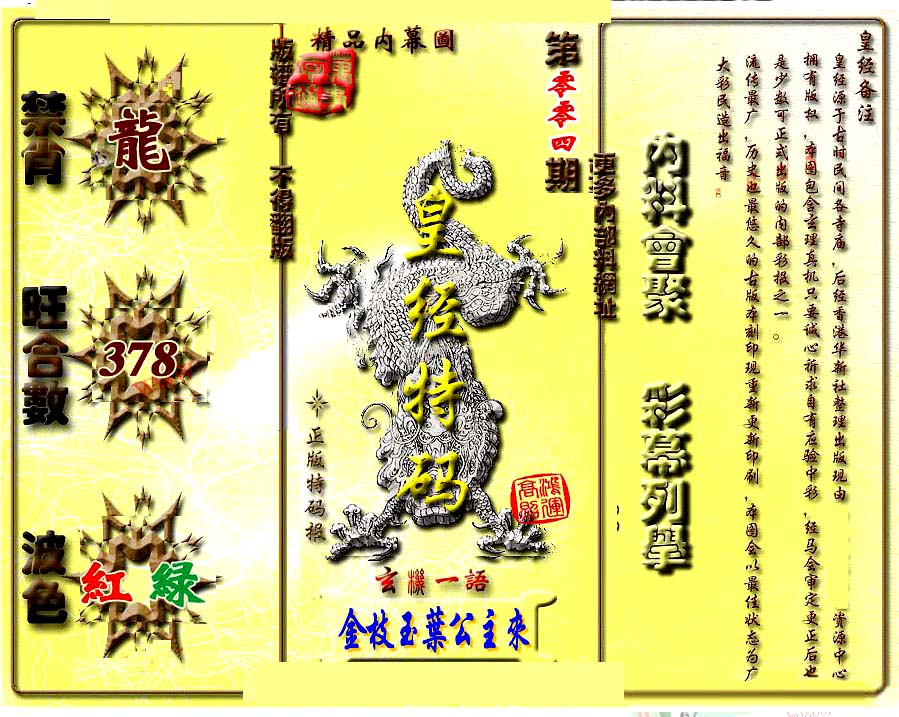 皇经备注
皇经源于古时民间各寺庙，后经香港华新社整理出版现由 资源中心
拥有版权，本图包含玄理真机只要诚心祈求自有应验中彩，经马会审定更正后也
是少数可正式出版的内部彩报之一。
流传最广，历史也最悠久的古版本刻印现重新更新印刷，本图会以最佳状态为广
大彩民造出福音
内料會聚
彩幕列擧
更多內部料網址
第零零四期
精品内幕圖
版權所有 不得翻版
皇经特码
正版特码报
鸿運高照
玄機一語
金枝玉葉公主來
禁肖
龍
旺合數
378
波色
紅 綠